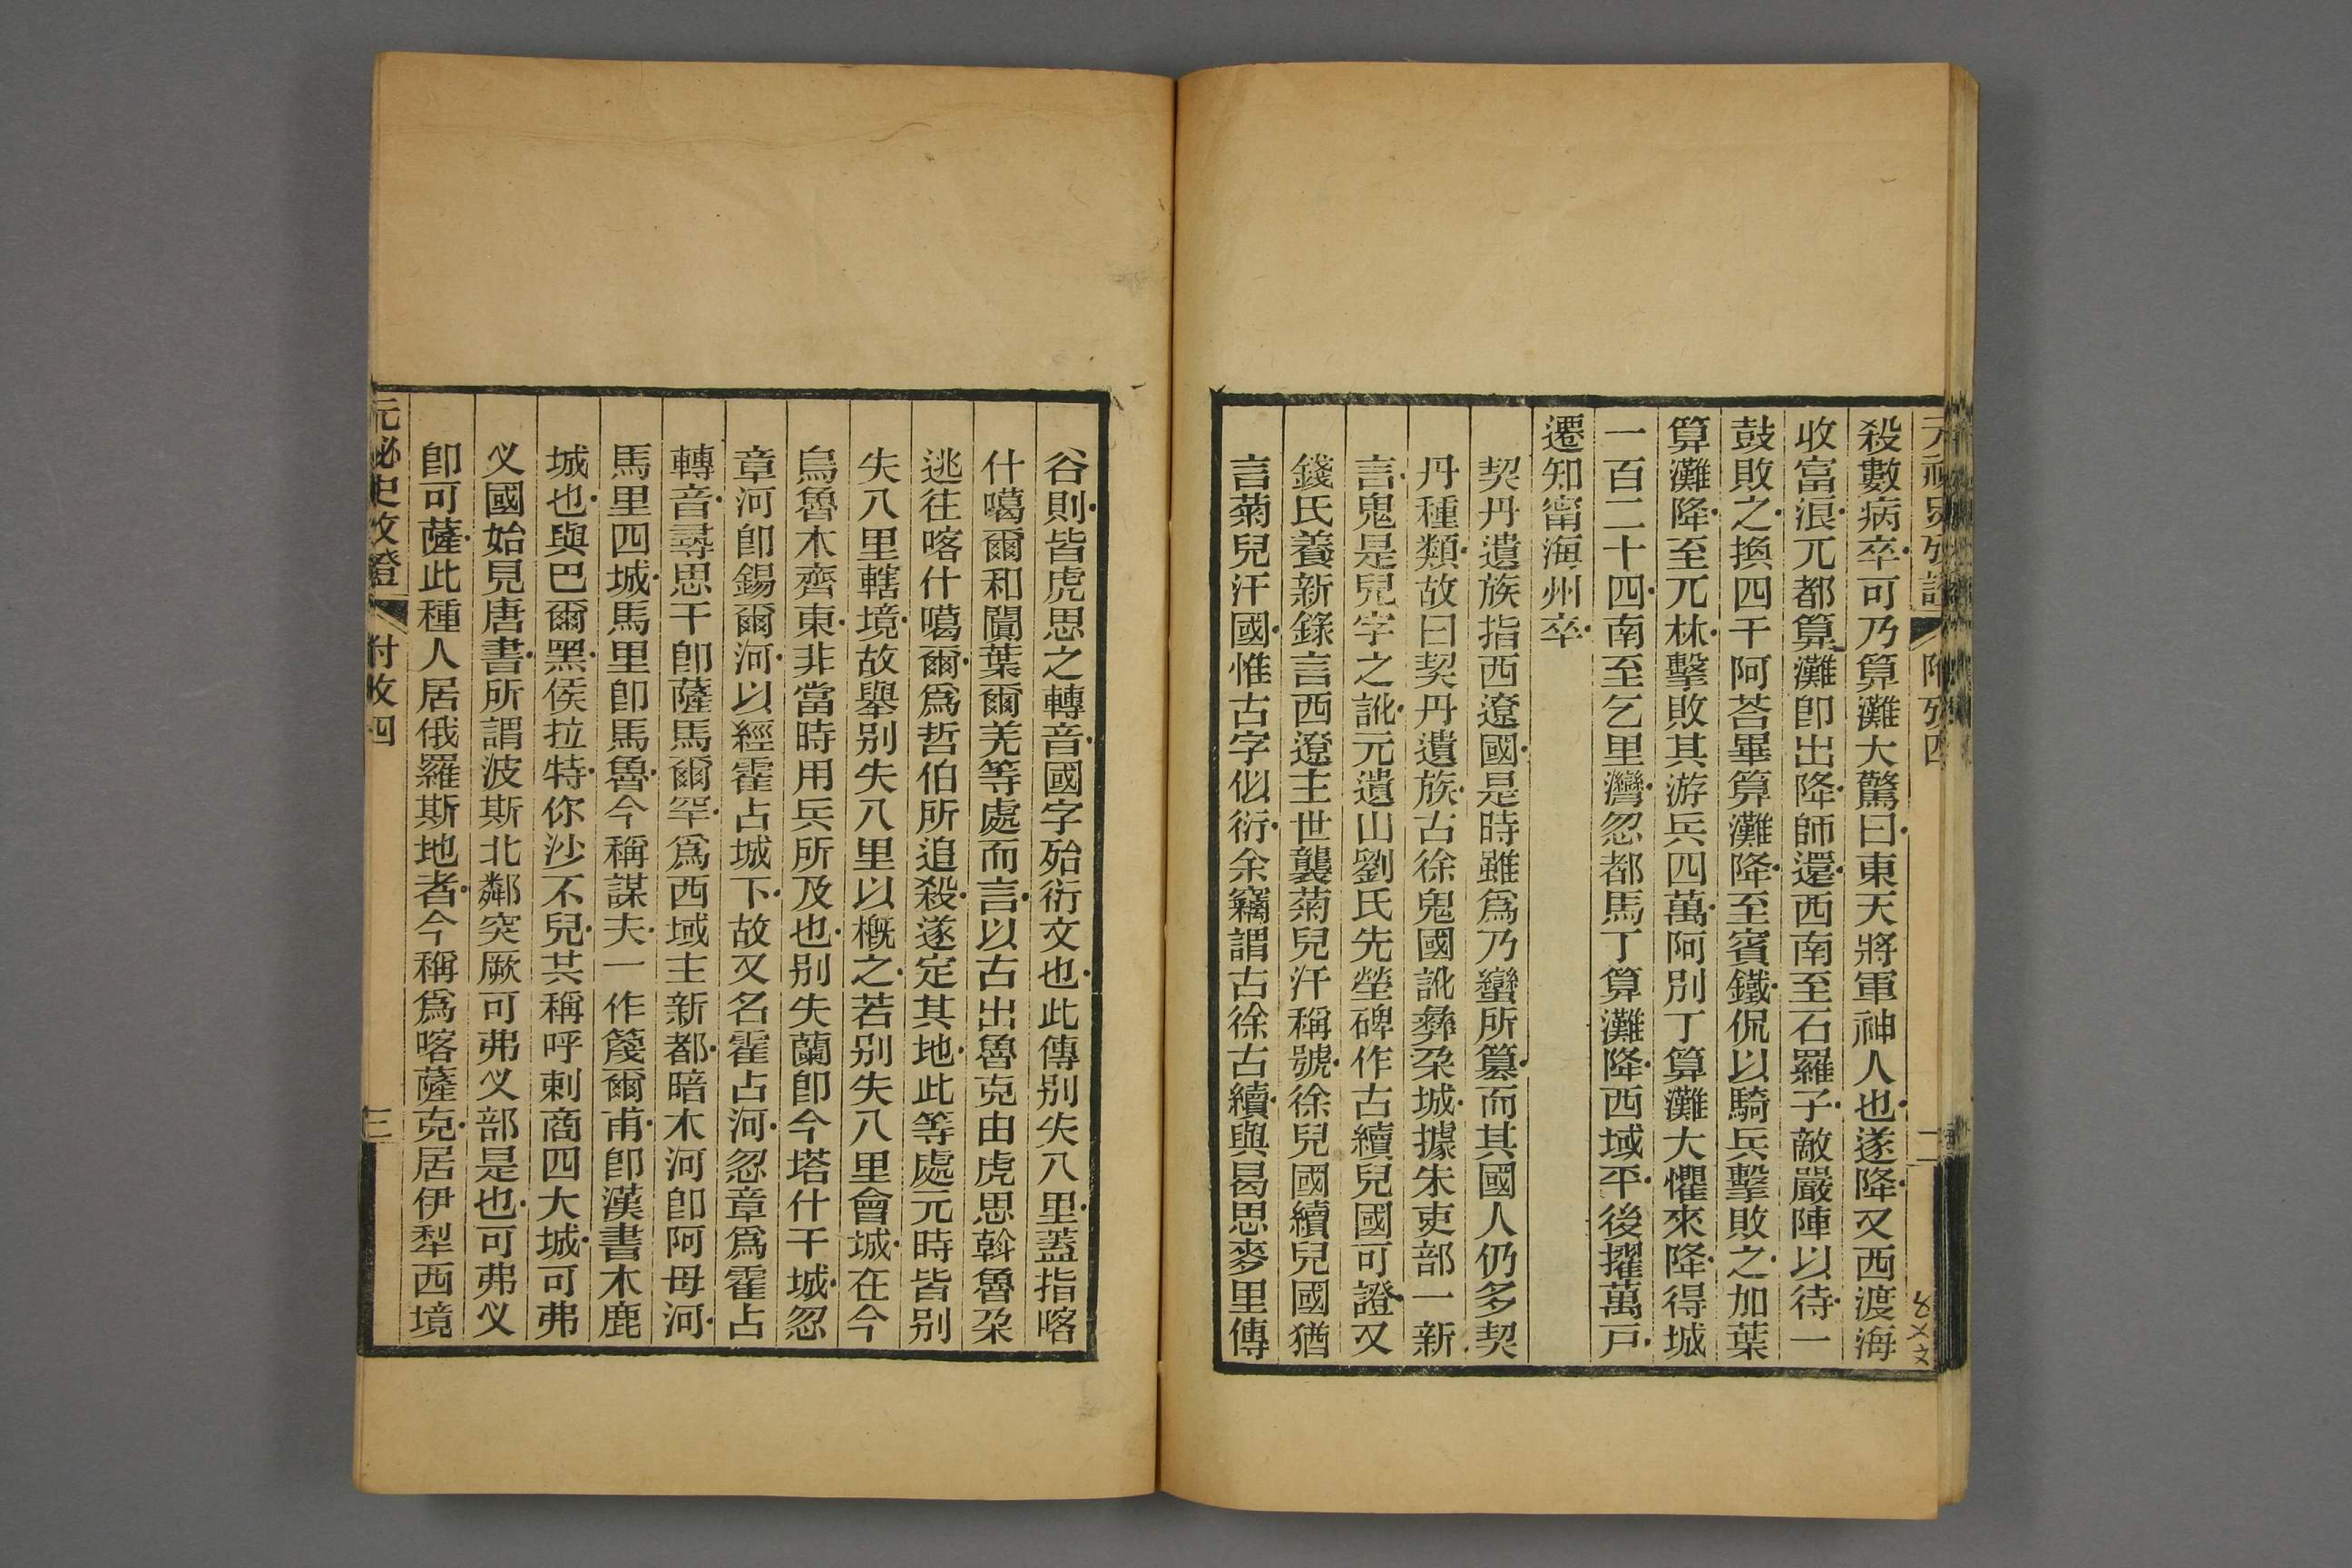 殺數病卒可乃算灘大驚曰東天將軍神人也遂降又西渡海
收富浪兀都算灘卽出降師還西南至石羅子敵嚴陣以待一
鼓敗之換四干阿荅畢算灘降至賓鐵侃以騎兵擊敗之加葉
算灘降至兀林擊敗其游兵四萬阿別丁算灘大懼來降得城
一百二十四南至乞里灣忽都馬丁算灘降西域平後擢萬戸
遷知甯海州卒
契丹遺族指西遼國是時雖爲乃蠻所篡而其國人仍多契
丹種類故曰契丹遺族古徐鬼國訛彝朶城據朱吏部一新
言鬼是兒字之訛元遺山劉氏先塋碑作古續兒國可證又
錢氏養新錄言西遼主世襲菊兒汗稱號徐兒國續兒國猶
言菊兒汗國惟古字似衍余竊謂古徐古續與曷思麥里傳
谷則皆虎思之轉音國字殆衍文也此傳別失八里蓋指喀
什噶爾和闐葉爾羌等處而言以古出魯克由虎思斡魯朶
逃往喀什噶爾爲哲伯所追殺遂定其地此等處元時皆別
失八里轄境故舉別失八里以概之若別失八里會城在今
烏魯木齊東非當時用兵所及也別失蘭卽今塔什干城忽
章河卽錫爾河以經霍占城下故又名霍占河忽章爲霍占
轉音尋思干卽薩馬爾罕爲西域主新都暗木河卽阿母河
馬里四城馬里卽馬魯今稱謀夫一作篾爾甫卽漢書木鹿
城也與巴爾黑侯拉特你沙不兒其稱呼剌商四大城可弗
义國始見唐書所謂波斯北鄰突厥可弗义部是也可弗义
卽可薩此種人居俄羅斯地者今稱爲喀薩克居伊犁西境
元秘史攷證 附攷四 三